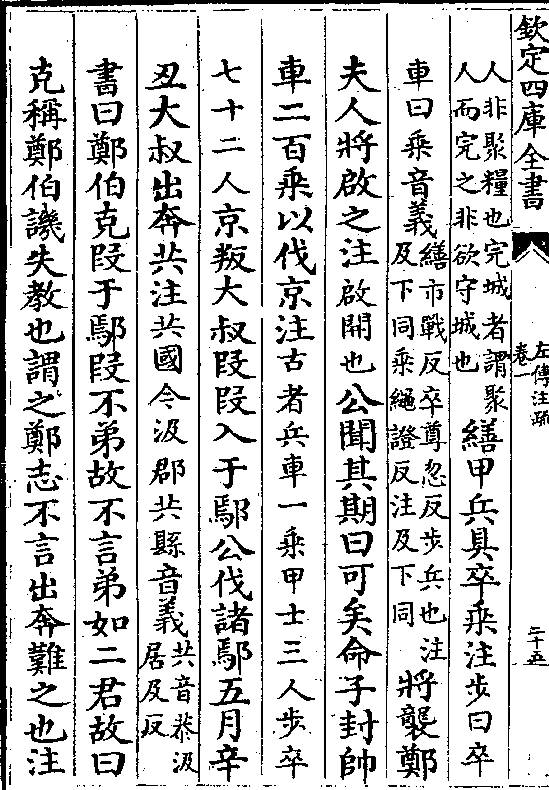 欽定四庫全書
左傳注疏
卷一
二十五
人非聚糧也完城者謂聚
人而完之非欲守城也
繕甲兵具卒乘注步曰卒
車曰乘音義
繕市戰反卒尊忽反步兵也注
及下同乘繩證反注及下同
將襲鄭
夫人將啟之注啟開也公聞其期曰可矣命子封帥
車二百乘以伐京注古者兵車一乘甲士三人步卒
七十二人京叛大叔段段入于鄢公伐諸鄢五月辛
丑大叔出奔共注共國今汲郡共縣音義
共音恭汲
居及反
書曰鄭伯克段于鄢段不弟故不言弟如二君故曰
克稱鄭伯譏失教也謂之鄭志不言出奔難之也注